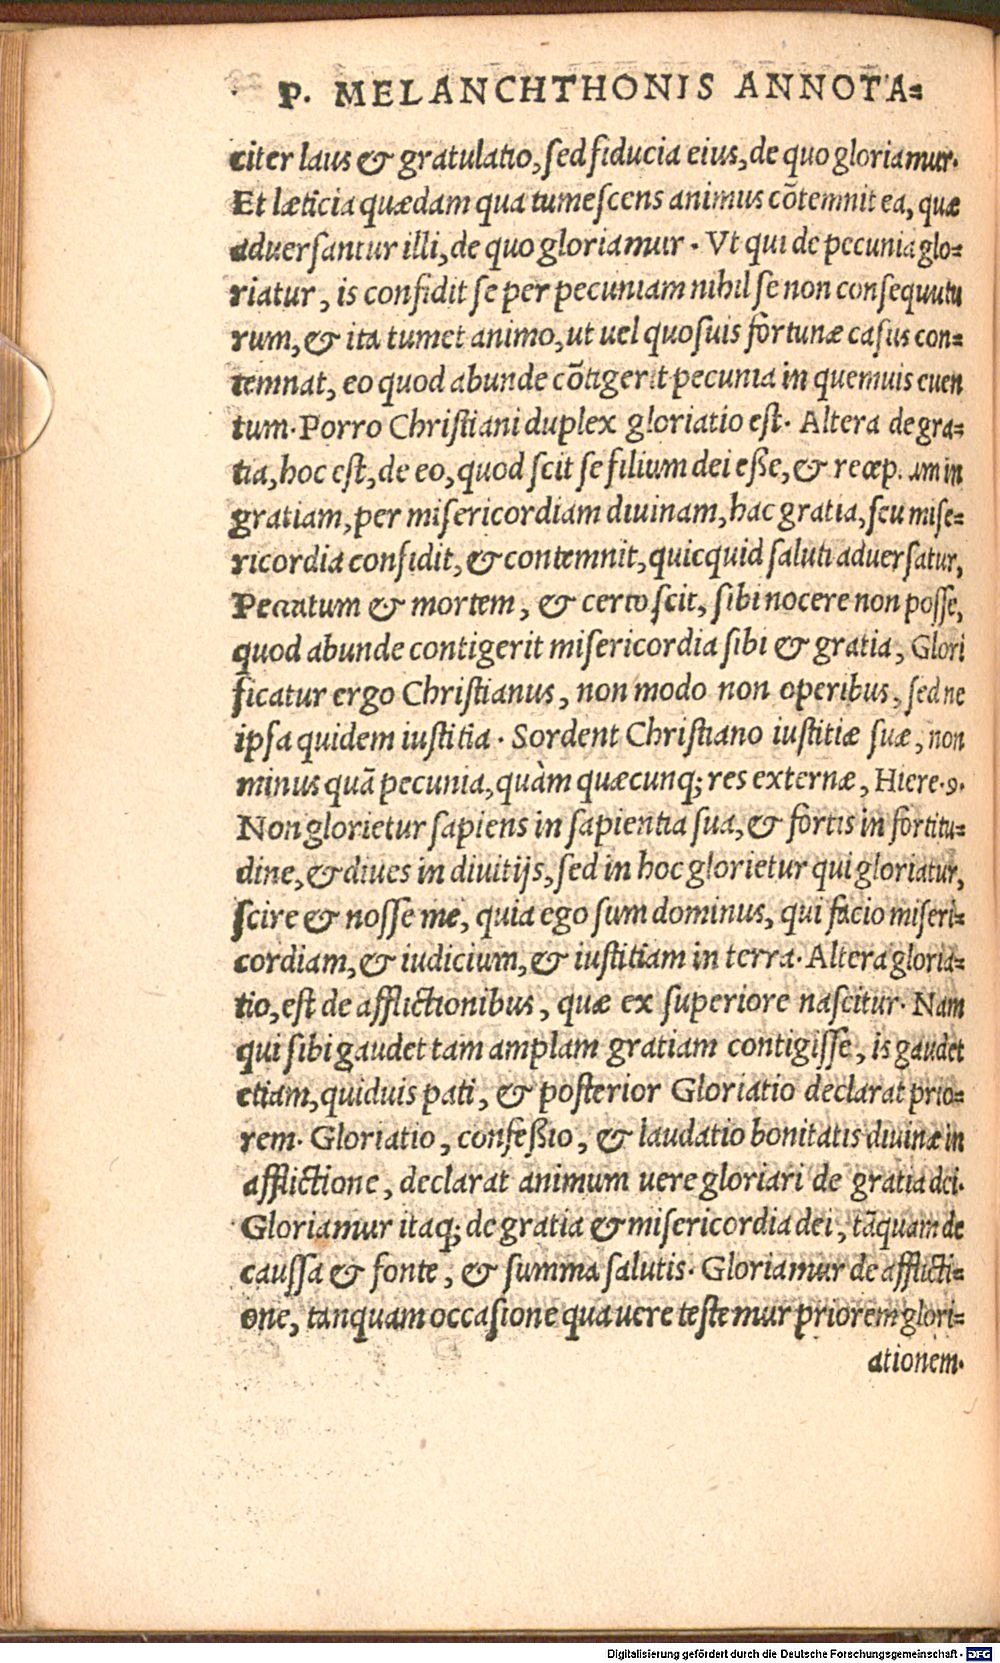 P. MELANCHTHONIS ANNOTA=
citer laus & gratulatio, sed fiducia eius, de quo gloriamur.
Et læticia quædam qua tumescens animus cõtemnit ea, quæ
aduersantur illi, de quo gloriamur. Vt qui de pecunia glo=
riatur, is confidit se per pecuniam nihil se non consequutu
rum, & ita tumet animo, ut uel quosuis fortunæ casus con=
temnat, eo quod abunde cõtigerit pecunia in quemuis euen
tum. Porro Christiani duplex gloriatio est. Altera de gra=
tia, hoc est, de eo, quod scit se filium dei eße, & in
gratiam, per misericordiam diuinam, hac gratia, seu mise=
ricordia confidit, & contemnit, quicquid saluti aduersatur,
Peccatum & mortem, & certo scit, sibi nocere non posse,
quod abunde contigerit misericordia sibi & gratia, Glori
ficatur ergo Christianus, non modo non operibus, sed ne
ipsa quidem iustitia. Sordent Christiano iustitiæ suæ, non
minus quã pecunia, quàm quæcunq; res externæ, Hiere.9.
Non glorietur sapiens in sapientia sua, & fortis in fortitu=
dine, & diues in diuitijs, sed in hoc glorietur qui gloriatur,
scire & nosse me, quia ego sum dominus, qui facio miseri=
cordiam, & iudicium, & iustitiam in terra. Altera gloria=
tio, est de afflictionibus, quæ ex superiore nascitur. Nam
qui sibi gaudet tam amplam gratiam contigisse, is gaudet
etiam, quiduis pati, & posterior Gloriatio declarat prio=
rem. Gloriatio, confeßio, & laudatio bonitatis diuinæ in
afflictione, declarat animum uere gloriari de gratia dei.
Gloriamur itaq; de gratia & misericordia dei, tãquam de
caussa & fonte, & summa salutis. Gloriamur de afflicti=
one, tanquam occasione qua uere testemur priorem glori=
ationem.
Digitalisierung gefördert durch die Deutsche Forschungsgemeinschaft - DFG